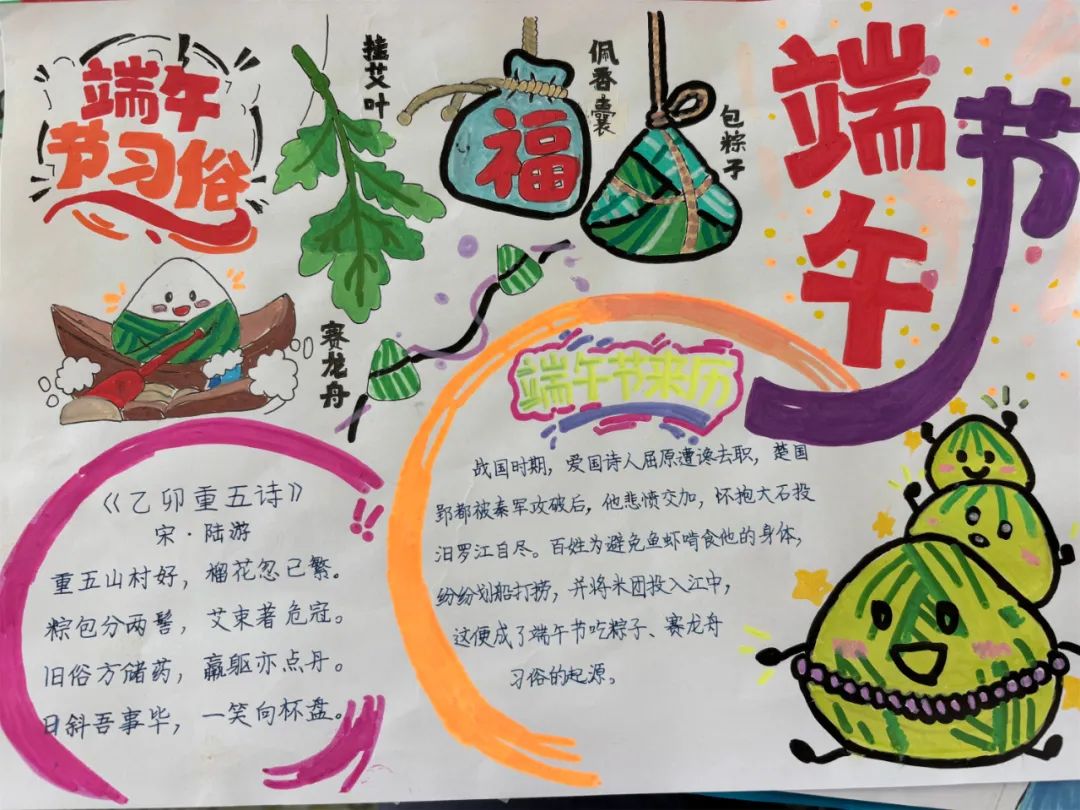 端午
节习俗
挂艾叶
福
佩香囊
包粽子
端午节
赛龙舟
端午节来历
战国时期，爱国诗人屈原遭谗去职，楚国
郢都被秦军攻破后，他悲愤交加，怀抱大石投
汨罗江自尽。百姓为避免鱼虾啃食他的身体，
纷纷划船打捞，并将米团投入江中，
这便成了端午节吃粽子、赛龙舟
习俗的起源。
《乙卯重五诗》
宋·陆游
重五山村好，榴花忽已繁。
粽包分两髻，艾束著危冠。
旧俗方储药，羸躯亦点丹。
日斜吾事毕，一笑向杯盘。